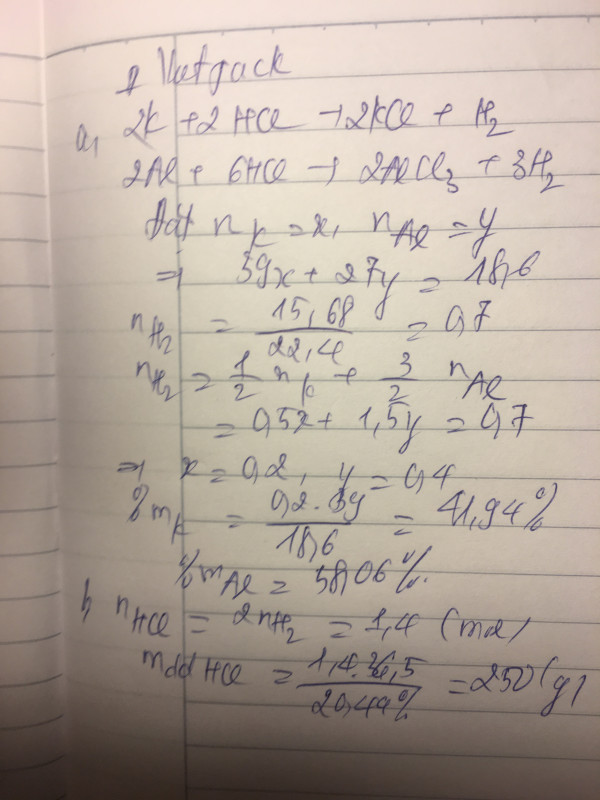 a, 2K + 2HCl → 2KCl + H2
2Al + 6HCl → 2AlCl3 + 3H2
Đặt nK = x, nAl = y
⇒ 39x + 27y = 18,6
nH2 = 15,68 / 22,4 = 0,7
nH2 = 1/2 nK + 3/2 nAl
= 0,5x + 1,5y = 0,7
⇒ x = 0,2, y = 0,4
%mK = 0,2.39 / 18,6 = 41,94%
%mAl = 58,06%.
b, nHCl = 2nH2 = 1,4 (mol)
mddHCl = 1,4.36,5 / 20,44% = 250 (g)